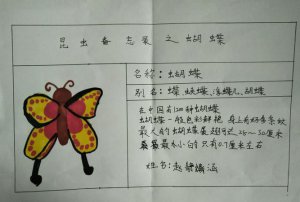 昆虫备忘录之蝴蝶
名称：蝴蝶
别名：蝶、蛱蝶、蝴蝶
在中国有1200种蝴蝶
蝴蝶一般色彩鲜艳 身上有好多条纹
最大的蝴蝶展翅可达28~30厘米
最小 只有0.7厘米左右
姓名：赵 涵